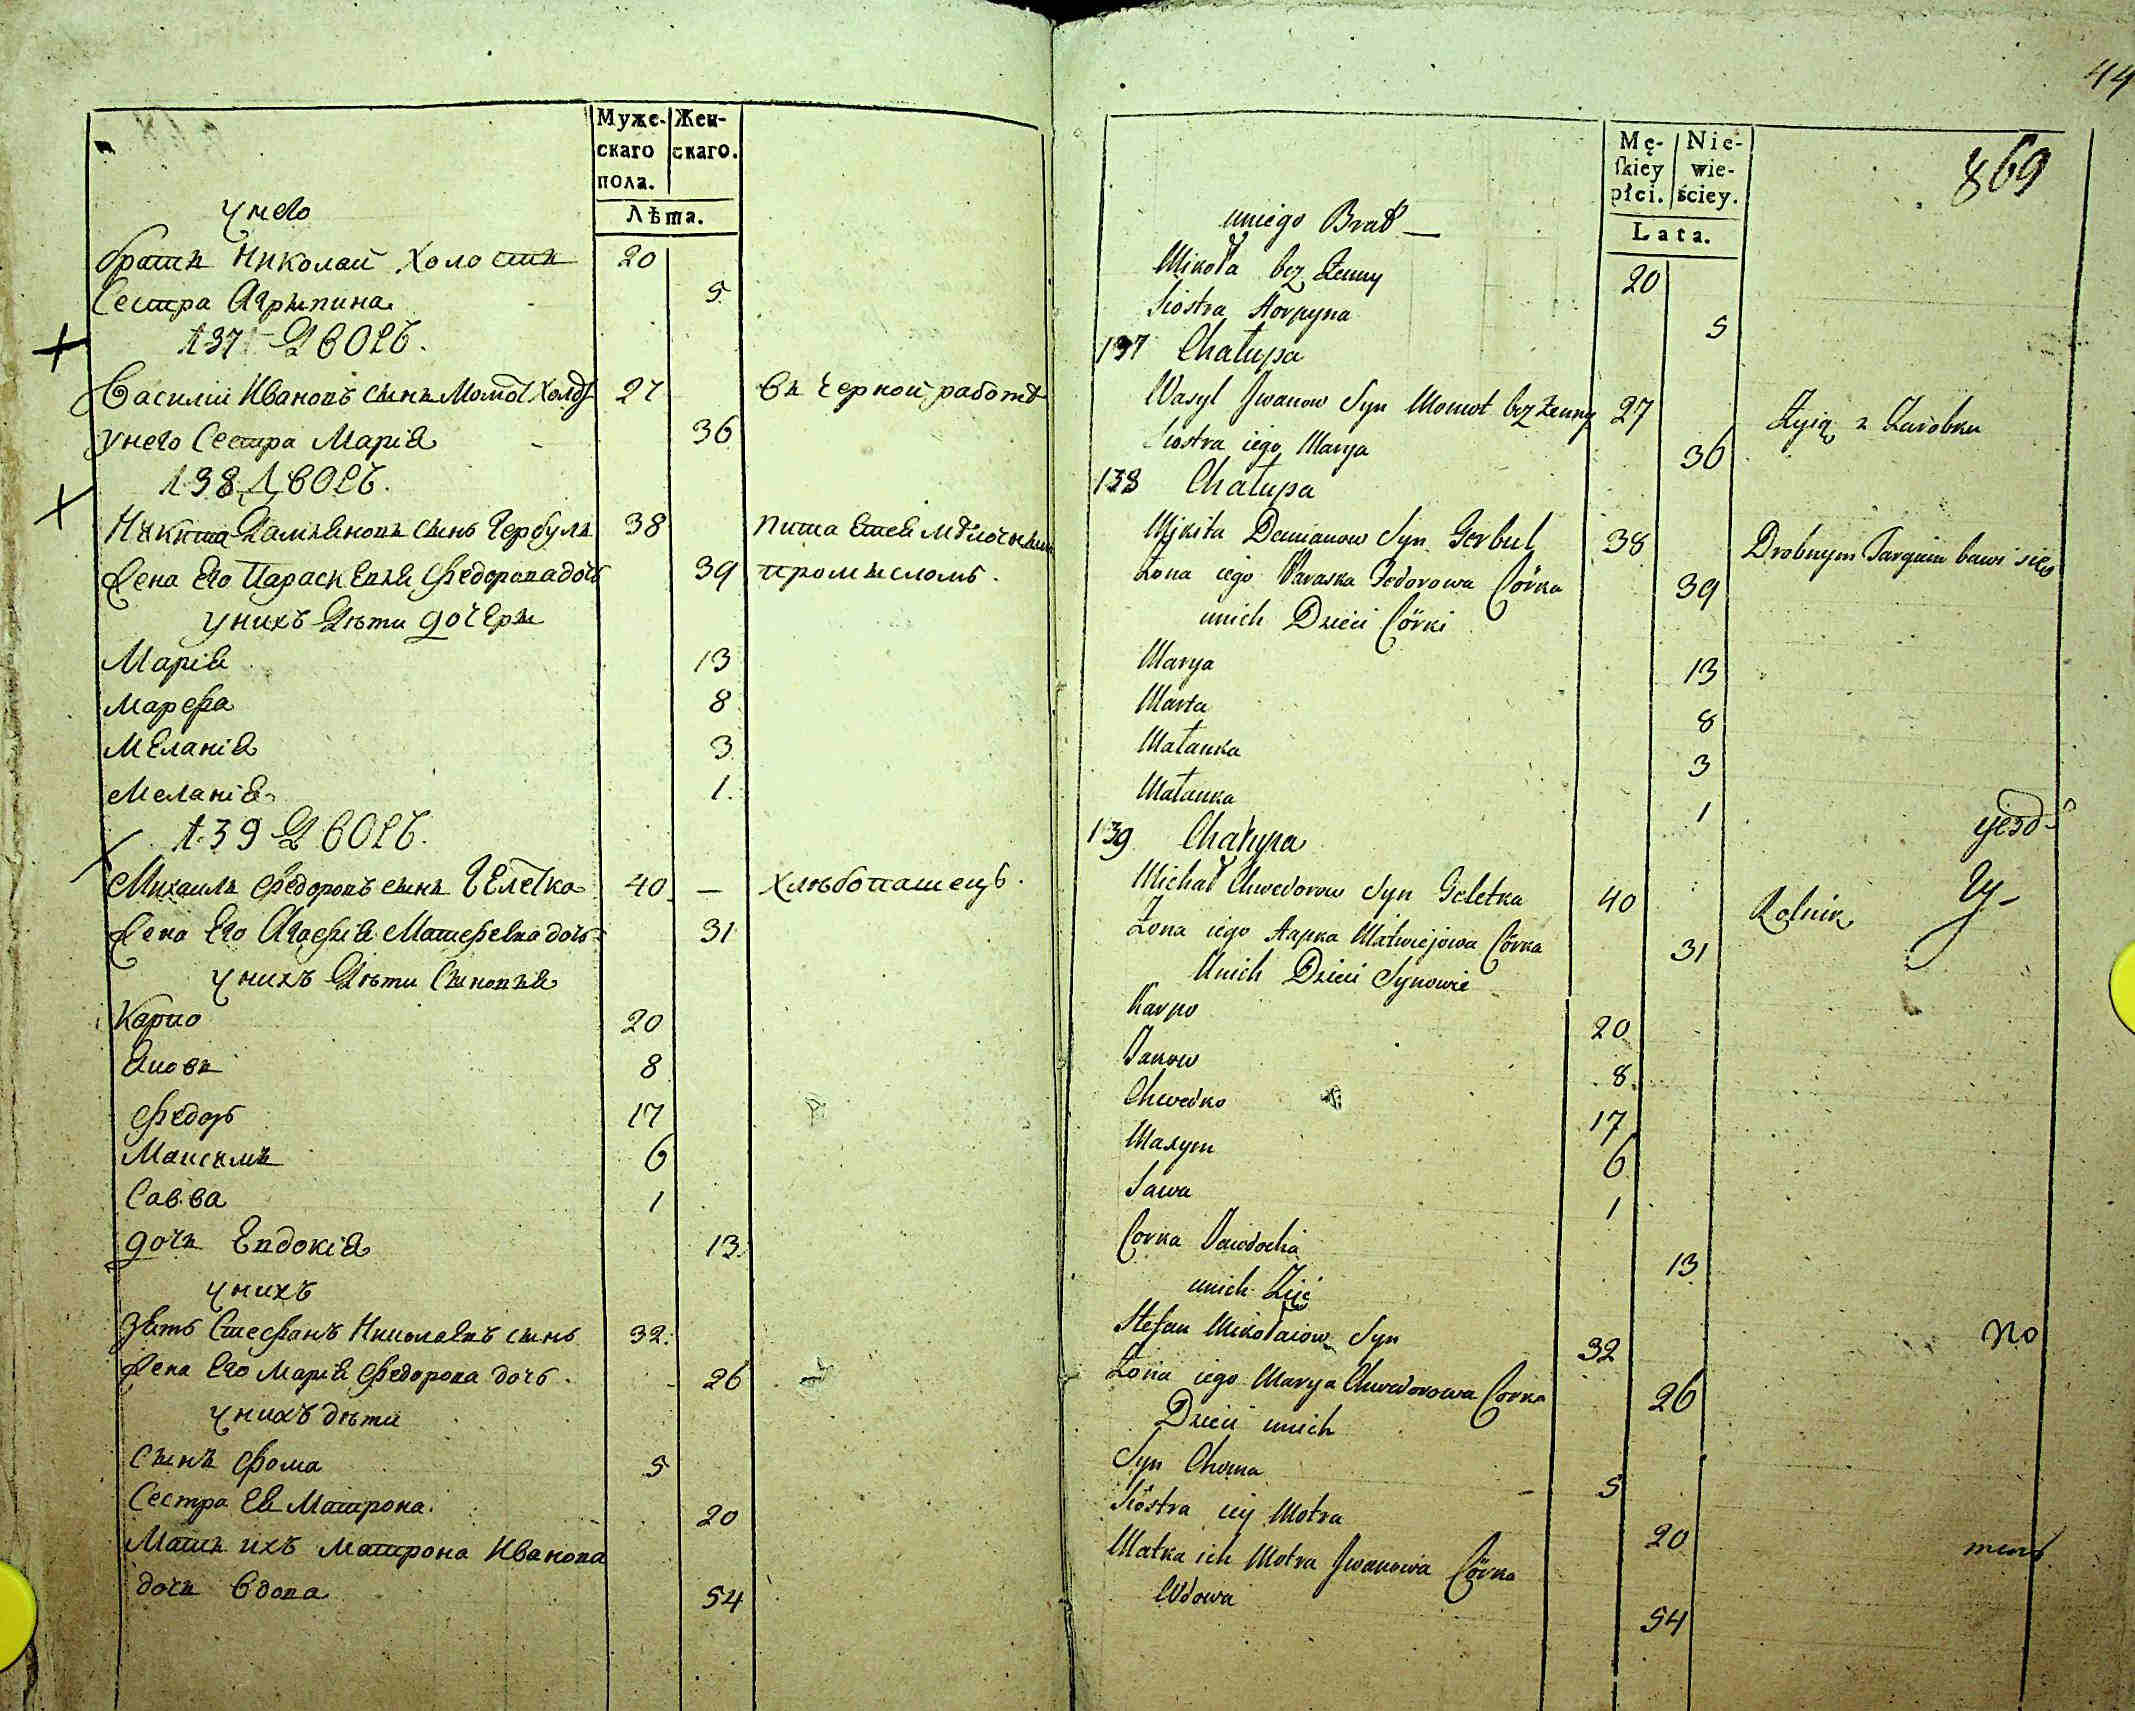 Муже-
скаго
пола.
Жен-
скаго.
Лѣта.
у него
братъ Николай холостъ 20
Сестра Агрыпина 5
137 Дворъ.
Василий Ивановъ сынъ Момот холос 27 въ черной работѣ
у него Сестра Марія 36
138 Дворъ.
Никита Дамьяновъ сынъ Гербулъ 38 питается мѣлочным
Жена его Параскевія Федорова дочь 39 промысломъ.
у нихъ Дѣти дочеры
Марія 13
Марфа 8
Меланія 3
Меланія 1.
139 Дворъ.
Михаилъ Федоровъ сынъ Гелетка 40 — хлѣбопашецъ.
Жена Его Агафія Матфева дочь 31
у нихъ Дѣти Сыновья
Карпо 20
Яковъ 8
Федоръ 17
Максымъ 6
Савва 1
дочь Евдокія 13
у нихъ
Зять Стефанъ Николаевъ сынъ 32.
Жена Его Марія Федорова дочь 26
у нихъ дѣти
Сынъ Фома 5
Сестра Ея Матрона 20
Мать ихъ Матрона Иванова
дочь вдова 54
44
869
Mę-
ſkiey
płci.
Nie-
wie-
ściey.
Lata.
uniego Brat —
Mikoła bez Żenny 20
Siostra Horpyna 5
137 Chałupa
Wasyl Jwanow Syn Momot bez żenny 27 Żyią z Zarobku
Siostra iego Marya 36
138 Chałupa
Mikita Demianow Syn Gerbul 38 Drobnym Targiem bawi się
Żona iego Paraska Fedorowa Córka 39
unich Dzieci Córki
Marya 13
Marta 8
Małanka 3
Małanka 1
139 Chałupa
Michał Chwedorow Syn Geletka 40 Rolnik
Żona iego Hapka Matwiejowa Córka 31
Unich Dzieci Synowie
Karpo 20
Jakow 8
Chwedko 17
Maxym 6
Sawa 1
Corka Jawdocha 13
unich Zięć
Stefan Mikołaiow Syn 32
Żona iego Marya Chwedorowa Corka 26
Dzieci unich
Syn Choma 5
Siostra iey Motra 20
Matka ich Motra Jwanowa Córka
Wdowa 54